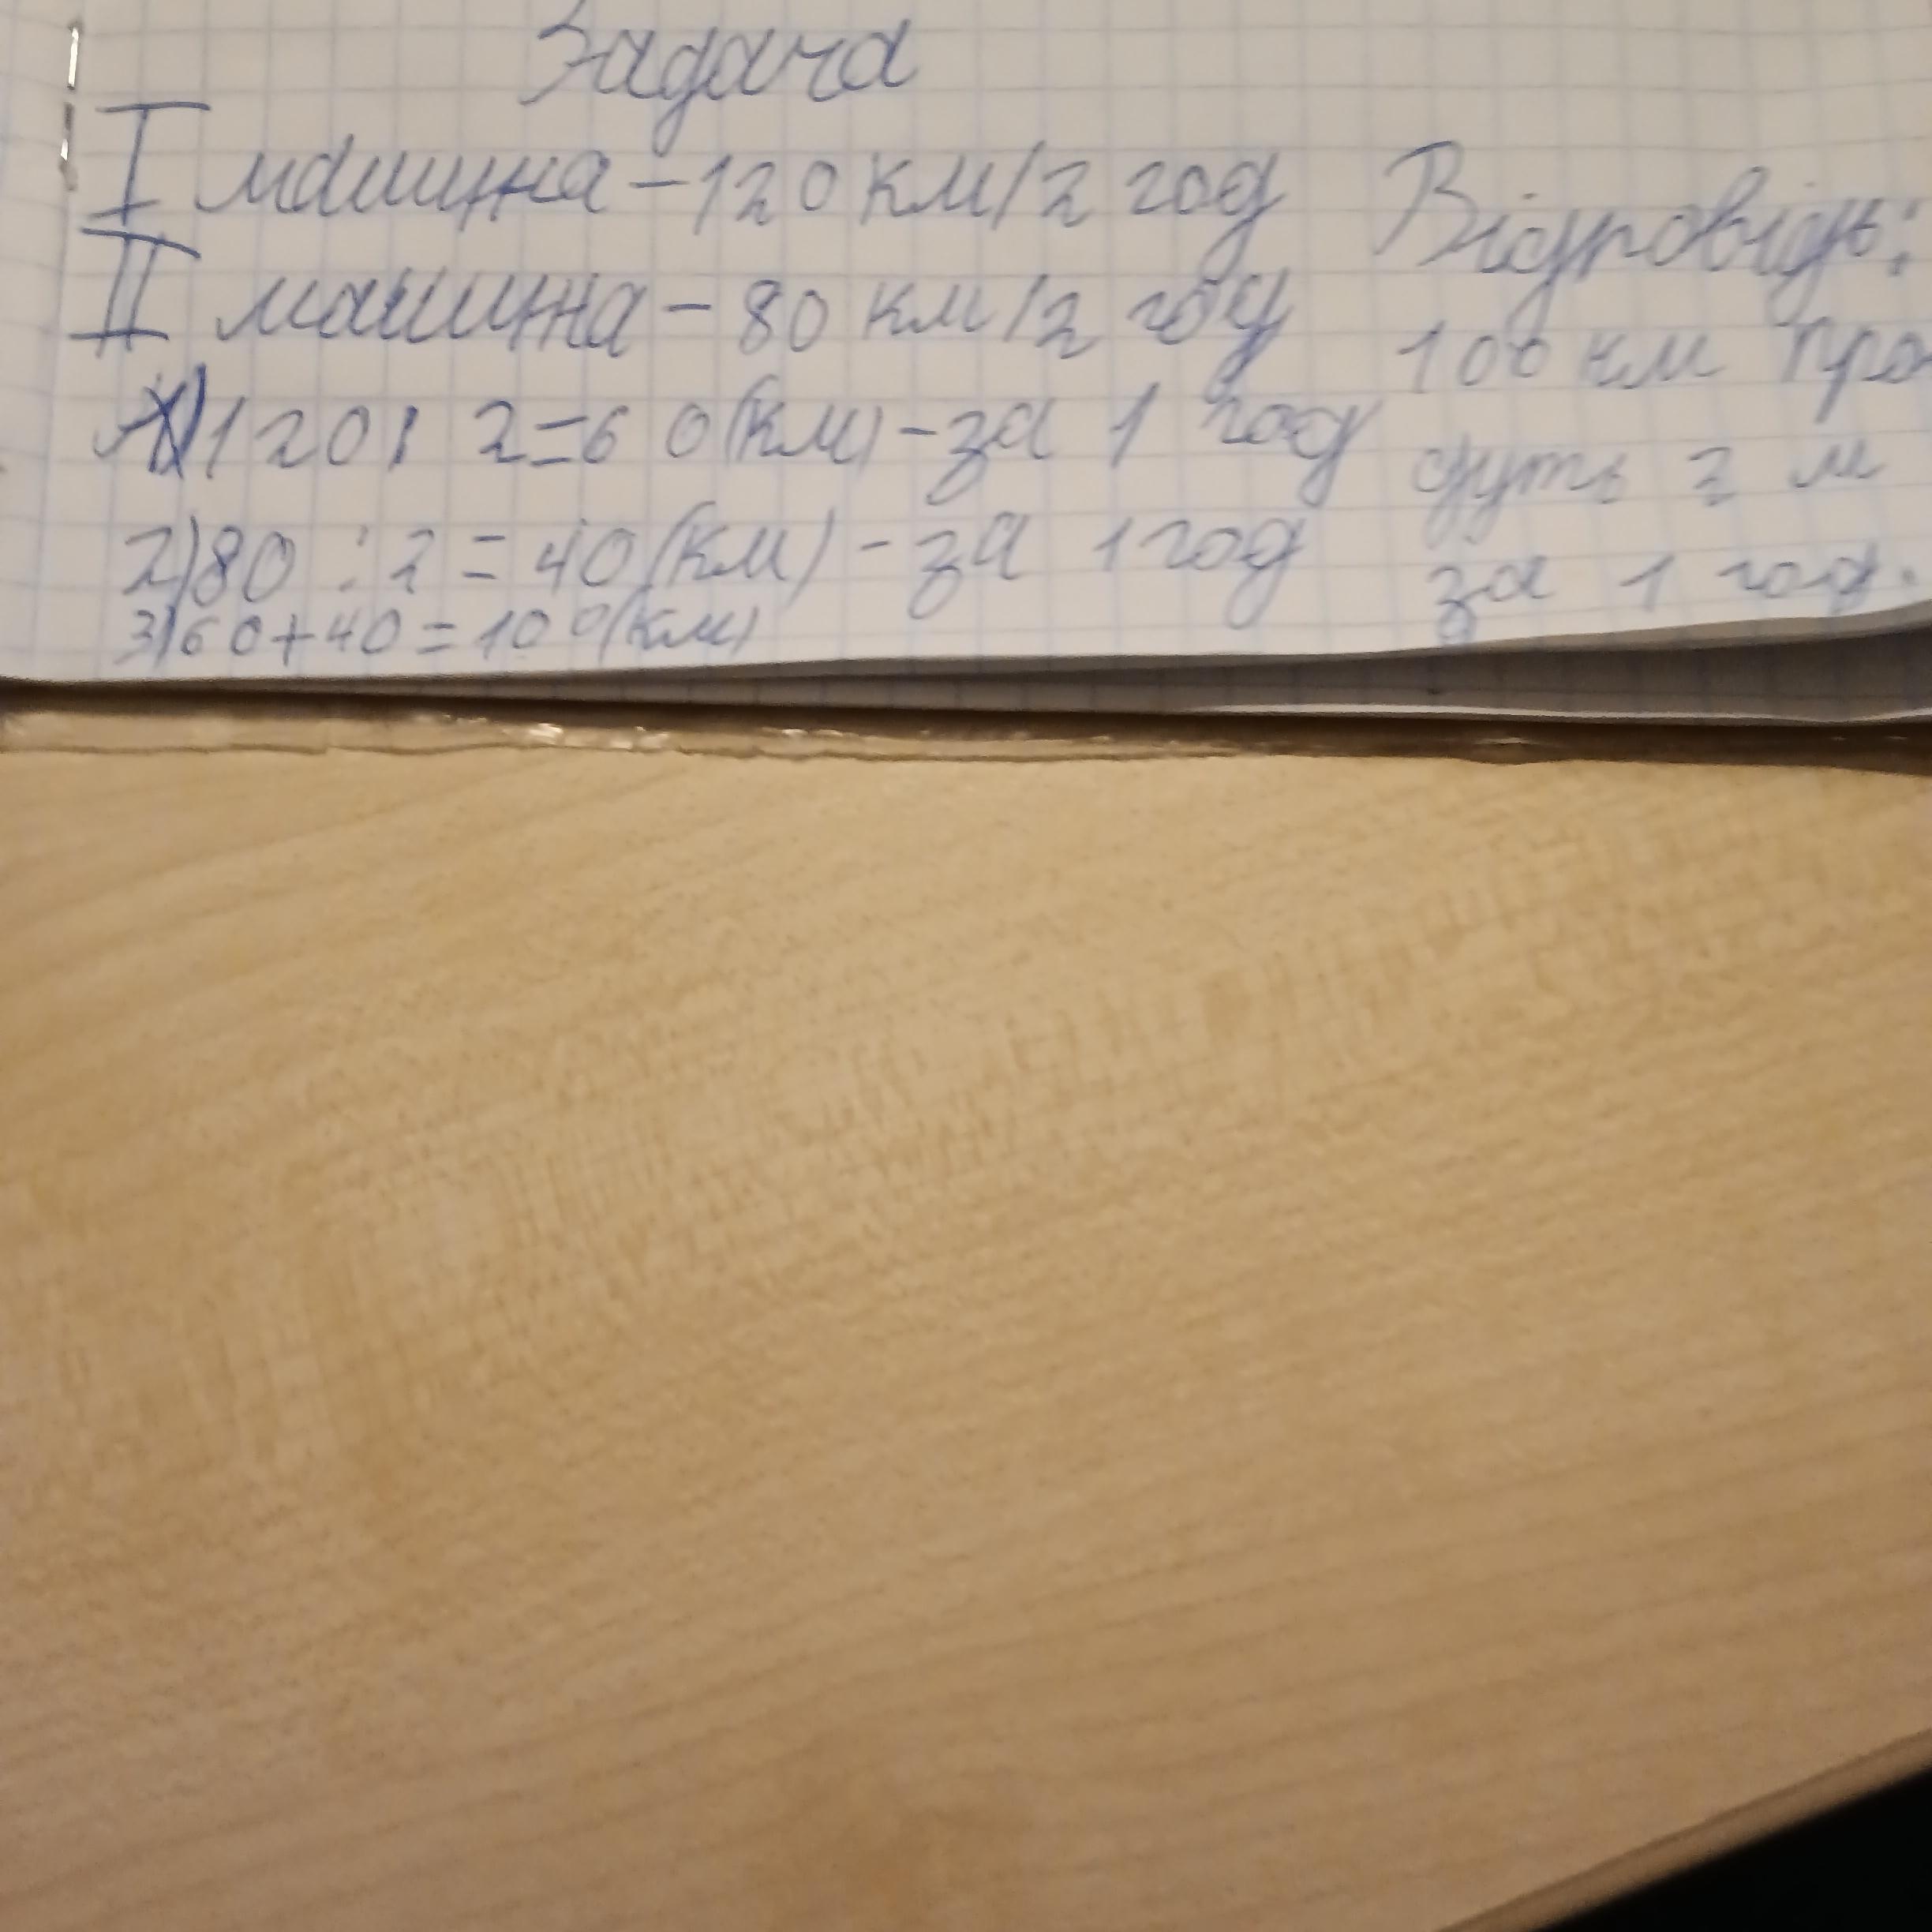 Задача
I машина – 120 км/2 год
II машина – 80 км/2 год
1) 120 : 2 = 60 (км) – за 1 год
2) 80 : 2 = 40 (км) – за 1 год
3) 60 + 40 = 100 (км)
Відповідь:
100 км прої
дуть 2 м
за 1 год.